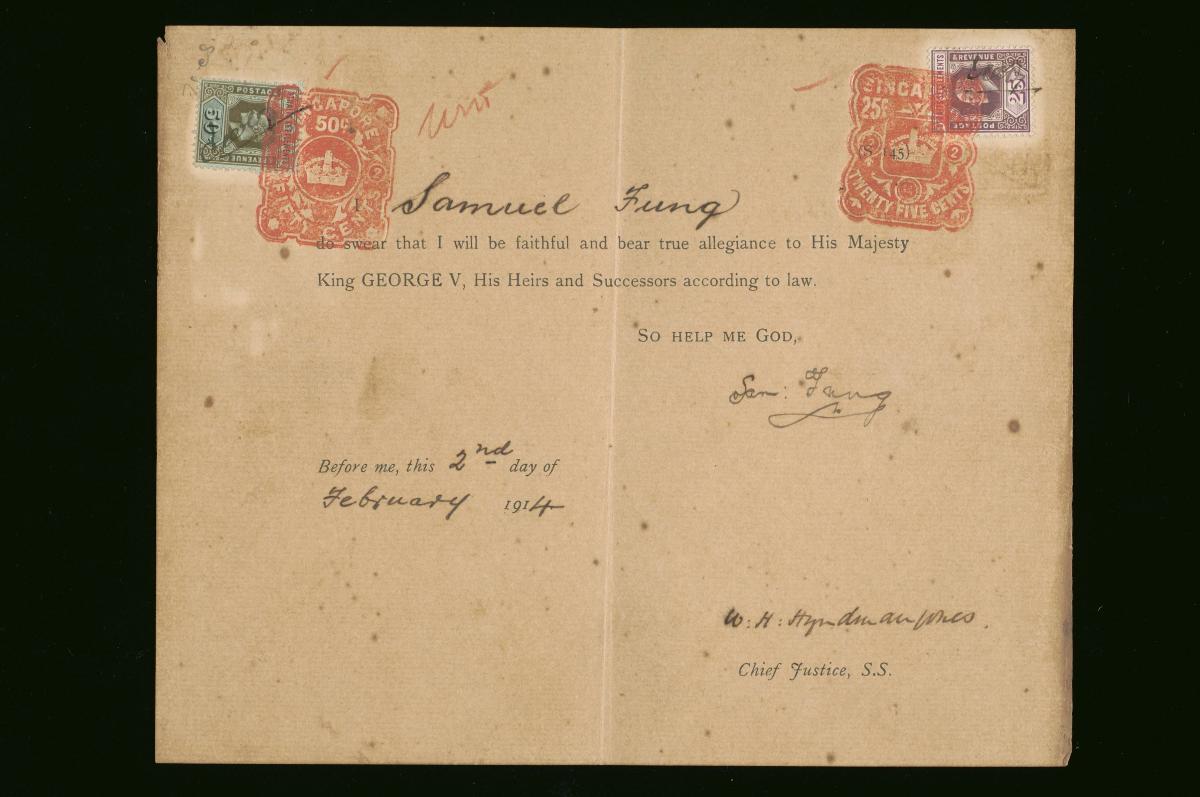 POSTAGE
REVENUE
GAPORE
50c
FIFTY CENTS
SINGAPORE
25c
TWENTY FIVE CENTS
& REVENUE
SETTLEMENTS
POSTAGE
25c
(S. 145)
I, Samuel Fung
do swear that I will be faithful and bear true allegiance to His Majesty
King GEORGE V, His Heirs and Successors according to law.
SO HELP ME GOD,
Sam: Fung
Before me, this 2nd day of
February 1914
W: H: Hyndman Jones.
Chief Justice, S.S.